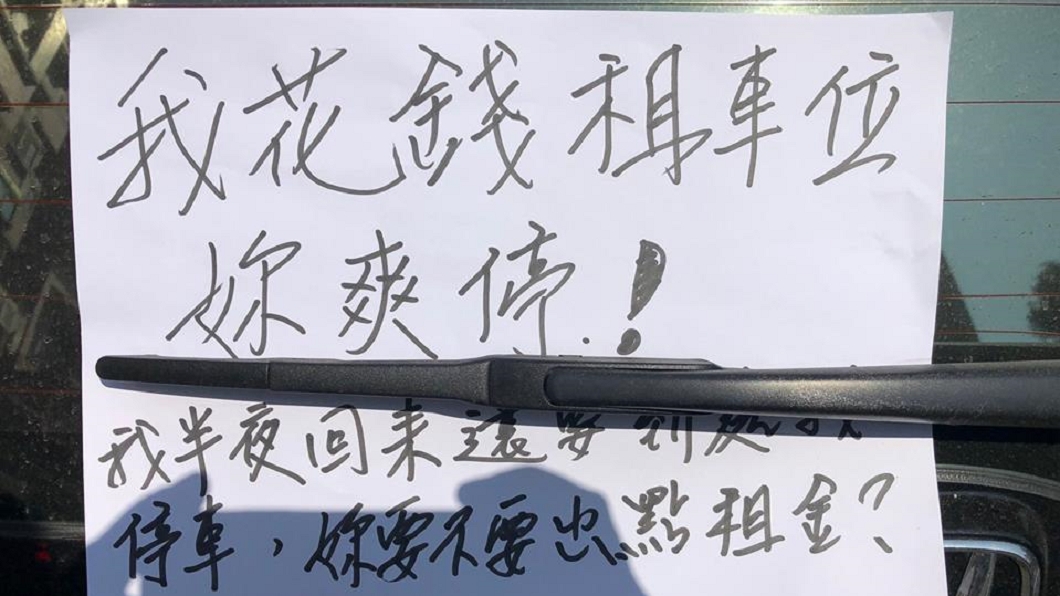 我花錢租車位
妳爽停.!
我半夜回來還要到處找
停車，妳要不要出點租金？